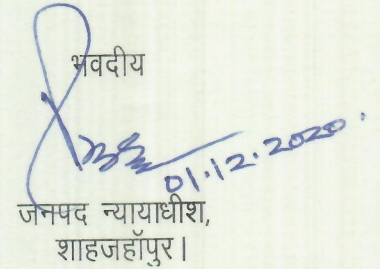 भवदीय
01.12.2020.
जनपद न्यायाधीश,
शाहजहॉपुर।